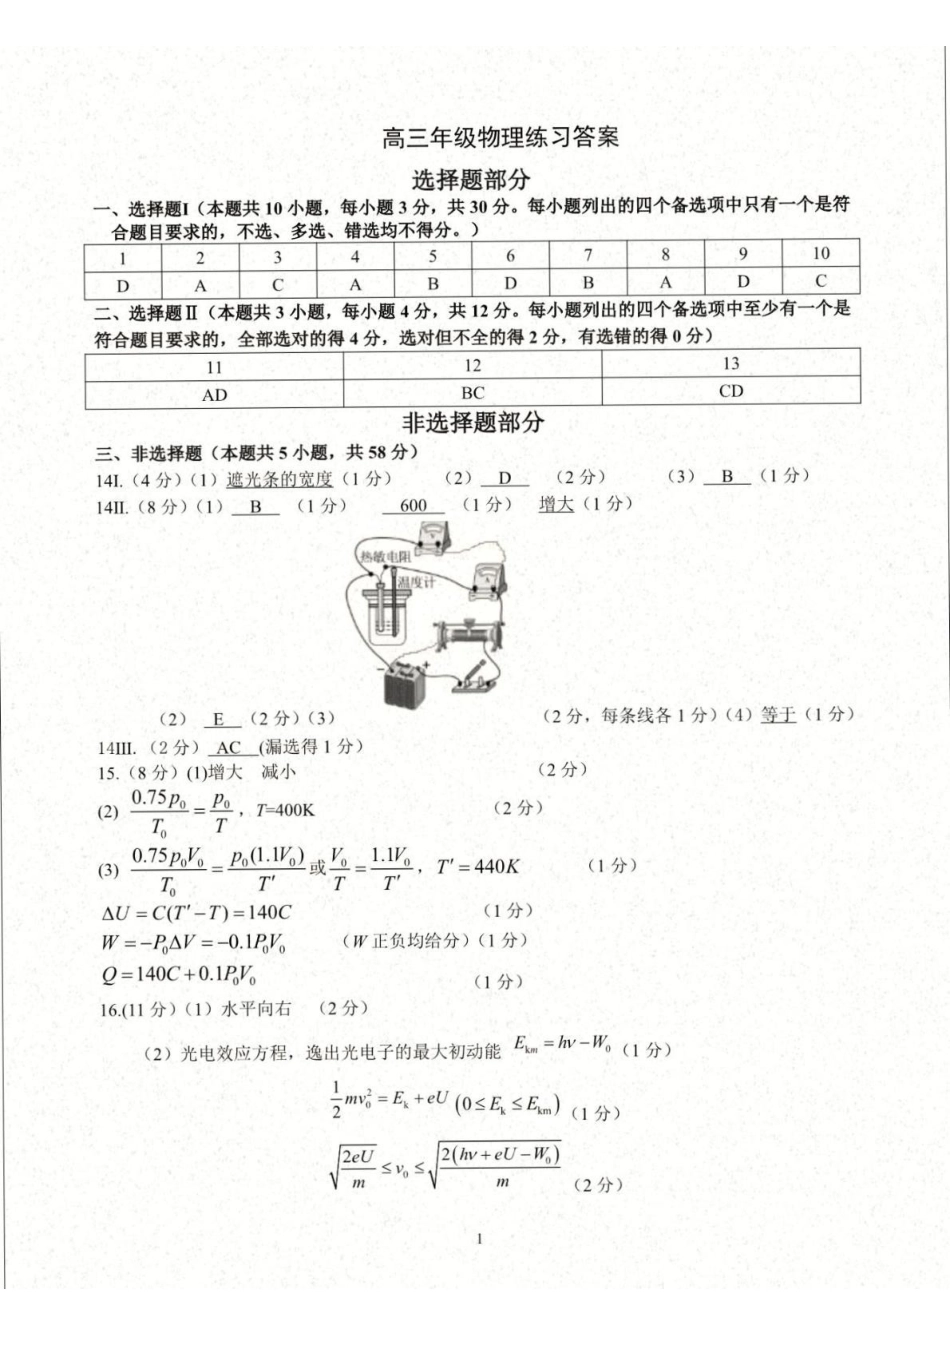 高三年级物理练习答案
选择题部分
一、选择题I（本题共 10 小题，每小题 3 分，共 30 分。每小题列出的四个备选项中只有一个是符
合题目要求的，不选、多选、错选均不得分。）
1 2 3 4 5 6 7 8 9 10
D A C A B D B A D C
二、选择题Ⅱ（本题共 3 小题，每小题 4 分，共 12 分。每小题列出的四个备选项中至少有一个是
符合题目要求的，全部选对的得 4 分，选对但不全的得 2 分，有选错的得 0 分）
11 12 13
AD BC CD
非选择题部分
三、非选择题（本题共 5 小题，共 58 分）
14I.（4 分）（1）遮光条的宽度（1 分） （2） D （2 分） （3） B （1 分）
14II.（8 分）（1） B （1 分） 600 （1 分） 增大（1 分）
V
热敏电阻
A
温度计
− +
（2） E （2 分）（3） （2 分，每条线各 1 分）（4）等于（1 分）
14III.（2 分） AC (漏选得 1 分）
15.（8 分）(1)增大 减小 （2 分）
(2) 0.75p₀/T₀ = p₀/T ，T=400K （2 分）
(3) 0.75p₀V₀/T₀ = p₀(1.1V₀)/T′ 或 V₀/T = 1.1V₀/T′ ，T′ = 440K （1 分）
ΔU = C(T′−T) = 140C （1 分）
W = −P₀ΔV = −0.1P₀V₀ （W 正负均给分）（1 分）
Q = 140C + 0.1P₀V₀ （1 分）
16.(11 分）（1）水平向右 （2 分）
（2）光电效应方程，逸出光电子的最大初动能 Eₖₘ = hν − W₀（1 分）
1/2 mv₀² = Eₖ + eU (0 ≤ Eₖ ≤ Eₖₘ)（1 分）
√(2eU/m) ≤ v₀ ≤ √(2(hν + eU − W₀)/m) （2 分）
1